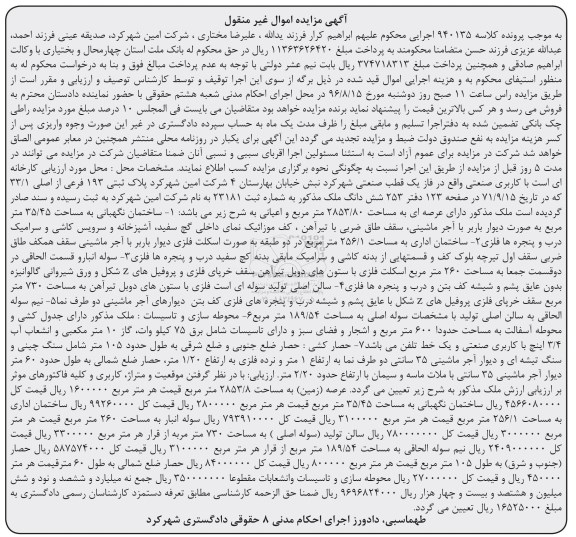 آگهی مزایده اموال غیر منقول
به موجب پرونده کلاسه ۹۴۰۱۳۵ اجرایی محکوم علیهم ابراهیم کرار فرزند یدالله ، علیرضا مختاری ، شرکت امین شهرکرد، صدیقه عینی فرزند احمد،
عبدالله عزیزی فرزند حسن متضامنا محکومند به پرداخت مبلغ ۱۱۳۶۳۶۲۶۴۲۰ ریال در حق محکوم له بانک ملت استان چهارمحال و بختیاری با وکالت
ابراهیم صادقی و همچنین پرداخت مبلغ ۳۷۴۷۱۸۳۱۳ ریال بابت نیم عشر دولتی با توجه به عدم پرداخت مبالغ فوق و بنا به درخواست محکوم له به
منظور استیفای محکوم به و هزینه اجرایی اموال قید شده در ذیل برگه از سوی این اجرا توقیف و توسط کارشناس توصیف و ارزیابی و مقرر است از
طریق مزایده راس ساعت ۱۱ صبح روز دوشنبه مورخ ۹۶/۸/۱۵ در محل اجرای احکام مدنی شعبه هشتم حقوقی با حضور نماینده دادستان محترم به
فروش می رسد و هر کس بالاترین قیمت را پیشنهاد نماید برنده مزایده خواهد بود متقاضیان می بایست فی المجلس ۱۰ درصد مبلغ مورد مزایده راطی
چک بانکی تضمین شده به دفتراجرا تسلیم و مابقی مبلغ را ظرف مدت یک ماه به حساب سپرده دادگستری در غیر این صورت وجوه واریزی پس از
کسر هزینه مزایده به نفع صندوق دولت ضبط و مزایده تجدید می گردد این آگهی برای یکبار در روزنامه محلی منتشر همچنین در معابر عمومی الصاق
خواهد شد شرکت در مزایده برای عموم آزاد است به استثنا مسئولین اجرا اقربای سببی و نسبی آنان ضمنا متقاضیان شرکت در مزایده می توانند در
مدت ۵ روز قبل از مزایده از طریق این اجرا نسبت به چگونگی نحوه برگزاری مزایده کسب اطلاع نمایند. مشخصات محل : محل مورد ارزیابی کارخانه
ای است با کاربری صنعتی واقع در فاز یک قطب صنعتی شهرکرد نبش خیابان بهارستان ۴ شرکت امین شهرکرد پلاک ثبتی ۱۹۳ فرعی از اصلی ۳۳/۱
که در تاریخ ۷۱/۹/۱۵ در صفحه ۱۲۳ دفتر ۲۵۳ شش دانگ ملک مذکور به شماره ثبت ۲۳۱۸۱ به نام شرکت امین شهرکرد به ثبت رسیده و سند صادر
گردیده است ملک مذکور دارای عرصه ای به مساحت ۲۸۵۳/۸۰ متر مربع و اعیانی به شرح زیر می باشد: ۱- ساختمان نگهبانی به مساحت ۳۵/۴۵ متر
مربع به صورت دیوار باربر با آجر ماشینی، سقف طاق ضربی با تیرآهن ، کف موزائیک نمای داخلی گچ سفید، آشپزخانه و سرویس کاشی و سرامیک
درب و پنجره ها فلزی۲- ساختمان اداری به مساحت ۲۵۶/۱ متر مربع در دو طبقه به صورت اسکلت فلزی دیوار باربر با آجر ماشینی سقف همکف طاق
ضربی سقف اول تیرچه بلوک کف و قسمتهایی از بدنه کاشی و سرامیک مابقی بدنه گچ سفید درب و پنجره ها فلزی۳- سوله انبارو قسمت الحاقی در
دوقسمت جمعا به مساحت ۲۶۰ متر مربع اسکلت فلزی با ستون های دوبل تیرآهن سقف خرپای فلزی و پروفیل های Z شکل و ورق شیروانی گالوانیزه
بدون عایق پشم و شیشه کف بتن و درب و پنجره ها فلزی۴- سالن اصلی تولید سوله ای است فلزی با ستون های دوبل تیرآهن به مساحت ۷۳۰ متر
مربع سقف خرپای فلزی پروفیل های Z شکل با عایق پشم و شیشه درب و پنجره های فلزی کف بتن دیوارهای آجر ماشینی دو طرف نما۵- نیم سوله
الحاقی به سالن اصلی تولید با مشخصات سوله اصلی به مساحت ۱۸۹/۵۴ متر مربع۶- محوطه سازی و تاسیسات : ملک مذکور دارای جدول کشی و
محوطه آسفالت به مساحت حدودا ۶۰۰ متر مربع و اشجار و فضای سبز و دارای تاسیسات شامل برق ۷۵ کیلو وات، گاز ۱۰ متر مکعبی و انشعاب آب
۳/۴ اینچ با کاربری صنعتی و یک خط تلفن می باشد۷- حصار کشی : حصار ضلع جنوبی و ضلع شرقی به طول حدود ۱۰۵ متر شامل سنگ چینی و
سنگ تیشه ای و دیوار آجر ماشینی ۳۵ سانتی دو طرف نما به ارتفاع ۱ متر و نرده فلزی به ارتفاع ۱/۲۰ متر، حصار ضلع شمالی به طول حدود ۶۰ متر
دیوار آجر ماشینی ۳۵ سانتی با ملات ماسه و سیمان با ارتفاع حدود ۲/۲۰ متر. ارزیابی: با در نظر گرفتن موقعیت و متراژ، کاربری و کلیه فاکتورهای موثر
بر ارزیابی ارزش ملک مذکور به شرح زیر تعیین می گردد. عرصه (زمین) به مساحت ۲۸۵۳/۸ متر مربع قیمت هر متر مربع ۱۶۰۰۰۰۰ ریال قیمت کل
۴۵۶۶۰۸۰۰۰۰ ریال ساختمان نگهبانی به مساحت ۳۵/۴۵ متر مربع قیمت هر متر مربع ۲۸۰۰۰۰۰ ریال قیمت کل ۹۹۲۶۰۰۰۰ ریال ساختمان اداری
به مساحت ۲۵۶/۱ متر مربع قیمت هر متر مربع ۳۱۰۰۰۰۰ ریال قیمت کل ۷۹۳۹۱۰۰۰۰ ریال سوله انبار به مساحت ۲۶۰ متر مربع قیمت هر متر
مربع ۳۰۰۰۰۰۰ ریال قیمت کل ۷۸۰۰۰۰۰۰۰ ریال سالن تولید (سوله اصلی ) به مساحت ۷۳۰ متر مربع به از قرار هر متر مربع ۳۳۰۰۰۰۰ ریال قیمت
کل ۲۴۰۹۰۰۰۰۰۰ ریال نیم سوله الحاقی به مساحت ۱۸۹/۵۴ متر مربع از قرار هر متر مربع ۳۱۰۰۰۰۰ ریال قیمت کل ۵۸۷۵۷۴۰۰۰ ریال حصار
(جنوب و شرق) به طول ۱۰۵ متر مربع قیمت هر متر مربع ۸۰۰۰۰۰ ریال قیمت کل ۸۴۰۰۰۰۰۰ ریال حصار ضلع شمالی به طول ۶۰ مترقیمت هر متر
۴۵۰۰۰۰ ریال و قیمت کل ۲۷۰۰۰۰۰۰ ریال محوطه سازی و تاسیسات وانشعابات مقطوعا ۳۵۰۰۰۰۰۰۰ ریال جمع نه میلیارد و ششصد و نود و شش
میلیون و هشتصد و بیست و چهار هزار ریال ۹۶۹۶۸۲۴۰۰۰ ریال ضمنا حق الزحمه کارشناسی مطابق تعرفه دستمزد کارشناسان رسمی دادگستری به
مبلغ ۱۶۵۲۵۰۰۰ ریال تعیین می گردد.
طهماسبی، دادورز اجرای احکام مدنی ۸ حقوقی دادگستری شهرکرد